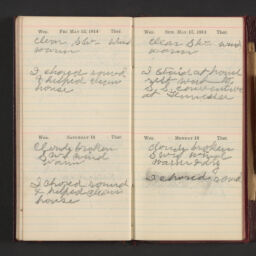 Wea. FRI. MAY 15, 1914 Ther.
Clear S.W. wind
warm
I chored round
& helped clean
house
Wea. SATURDAY 16 Ther.
Cloudy broken
S W wind
warm
I chored round
& helped clean
house
Wea. SUN. MAY 17, 1914 Ther.
Clear S.W. wind
warm
I staid at home
S. S. convention
at
Wea. MONDAY 18 Ther.
Cloudy broken
S W wind
warm
I chored round